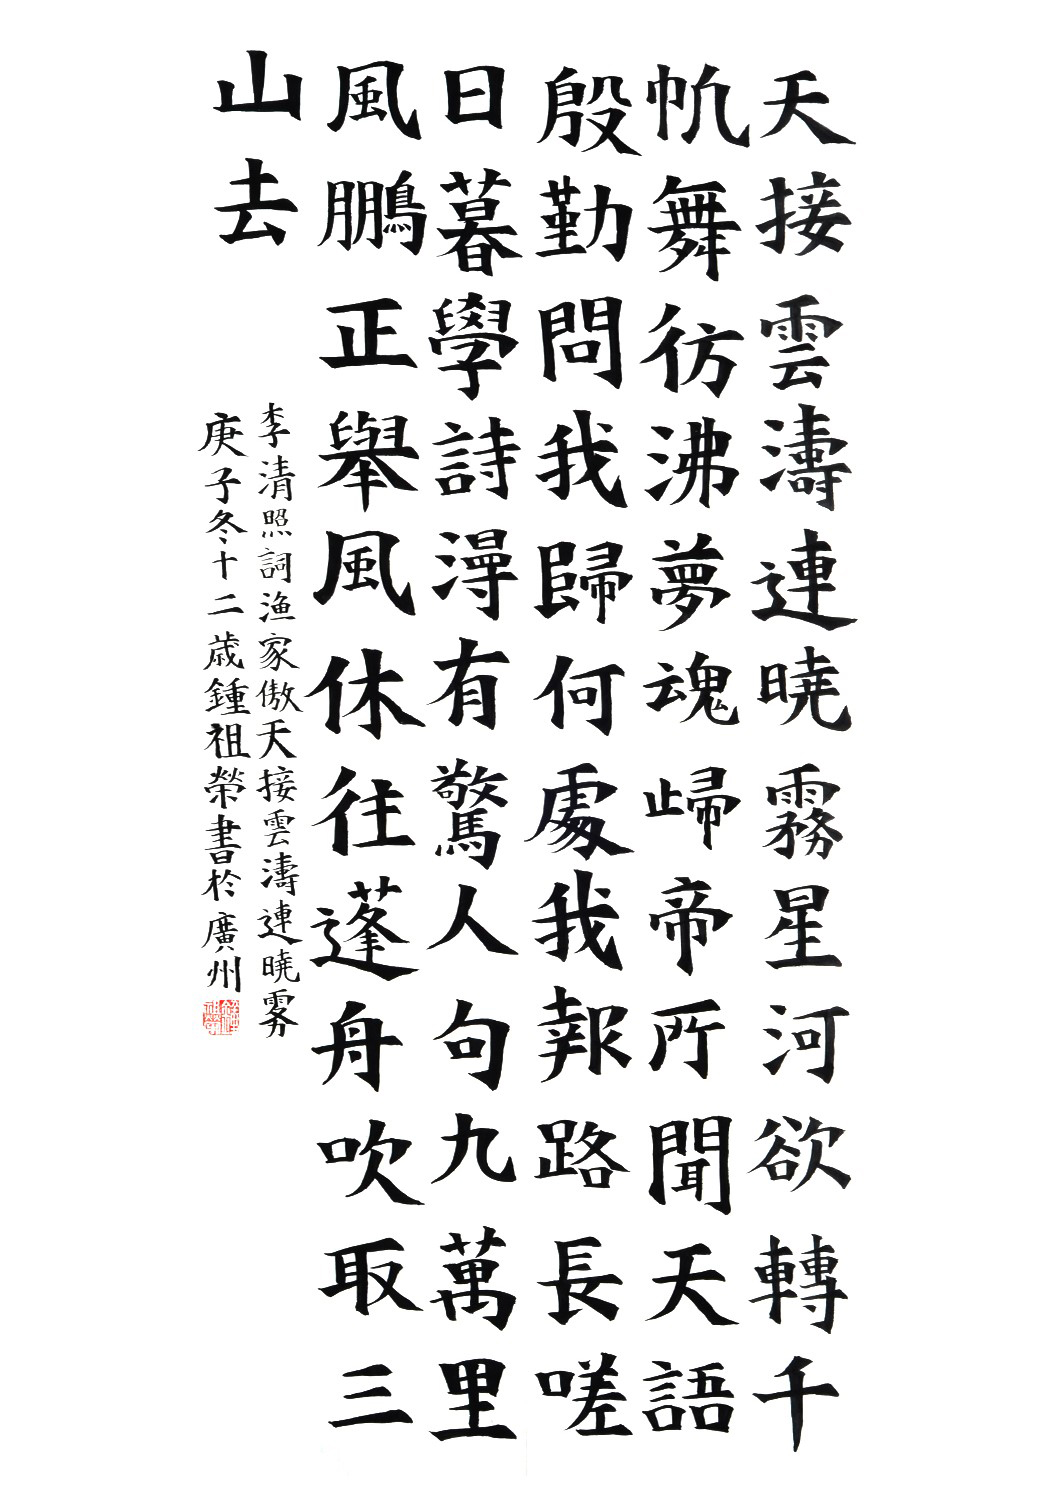 天接雲濤連曉霧星河欲轉千
帆舞彷沸夢魂歸帝所聞天語
殷勤問我歸何處我報路長嗟
日暮學詩漫有驚人句九萬里
風鵬正舉風休住蓬舟吹取三
山去
李清照詞渔家傲天接雲濤連曉雾
庚子冬十二歳鍾祖榮書於廣州